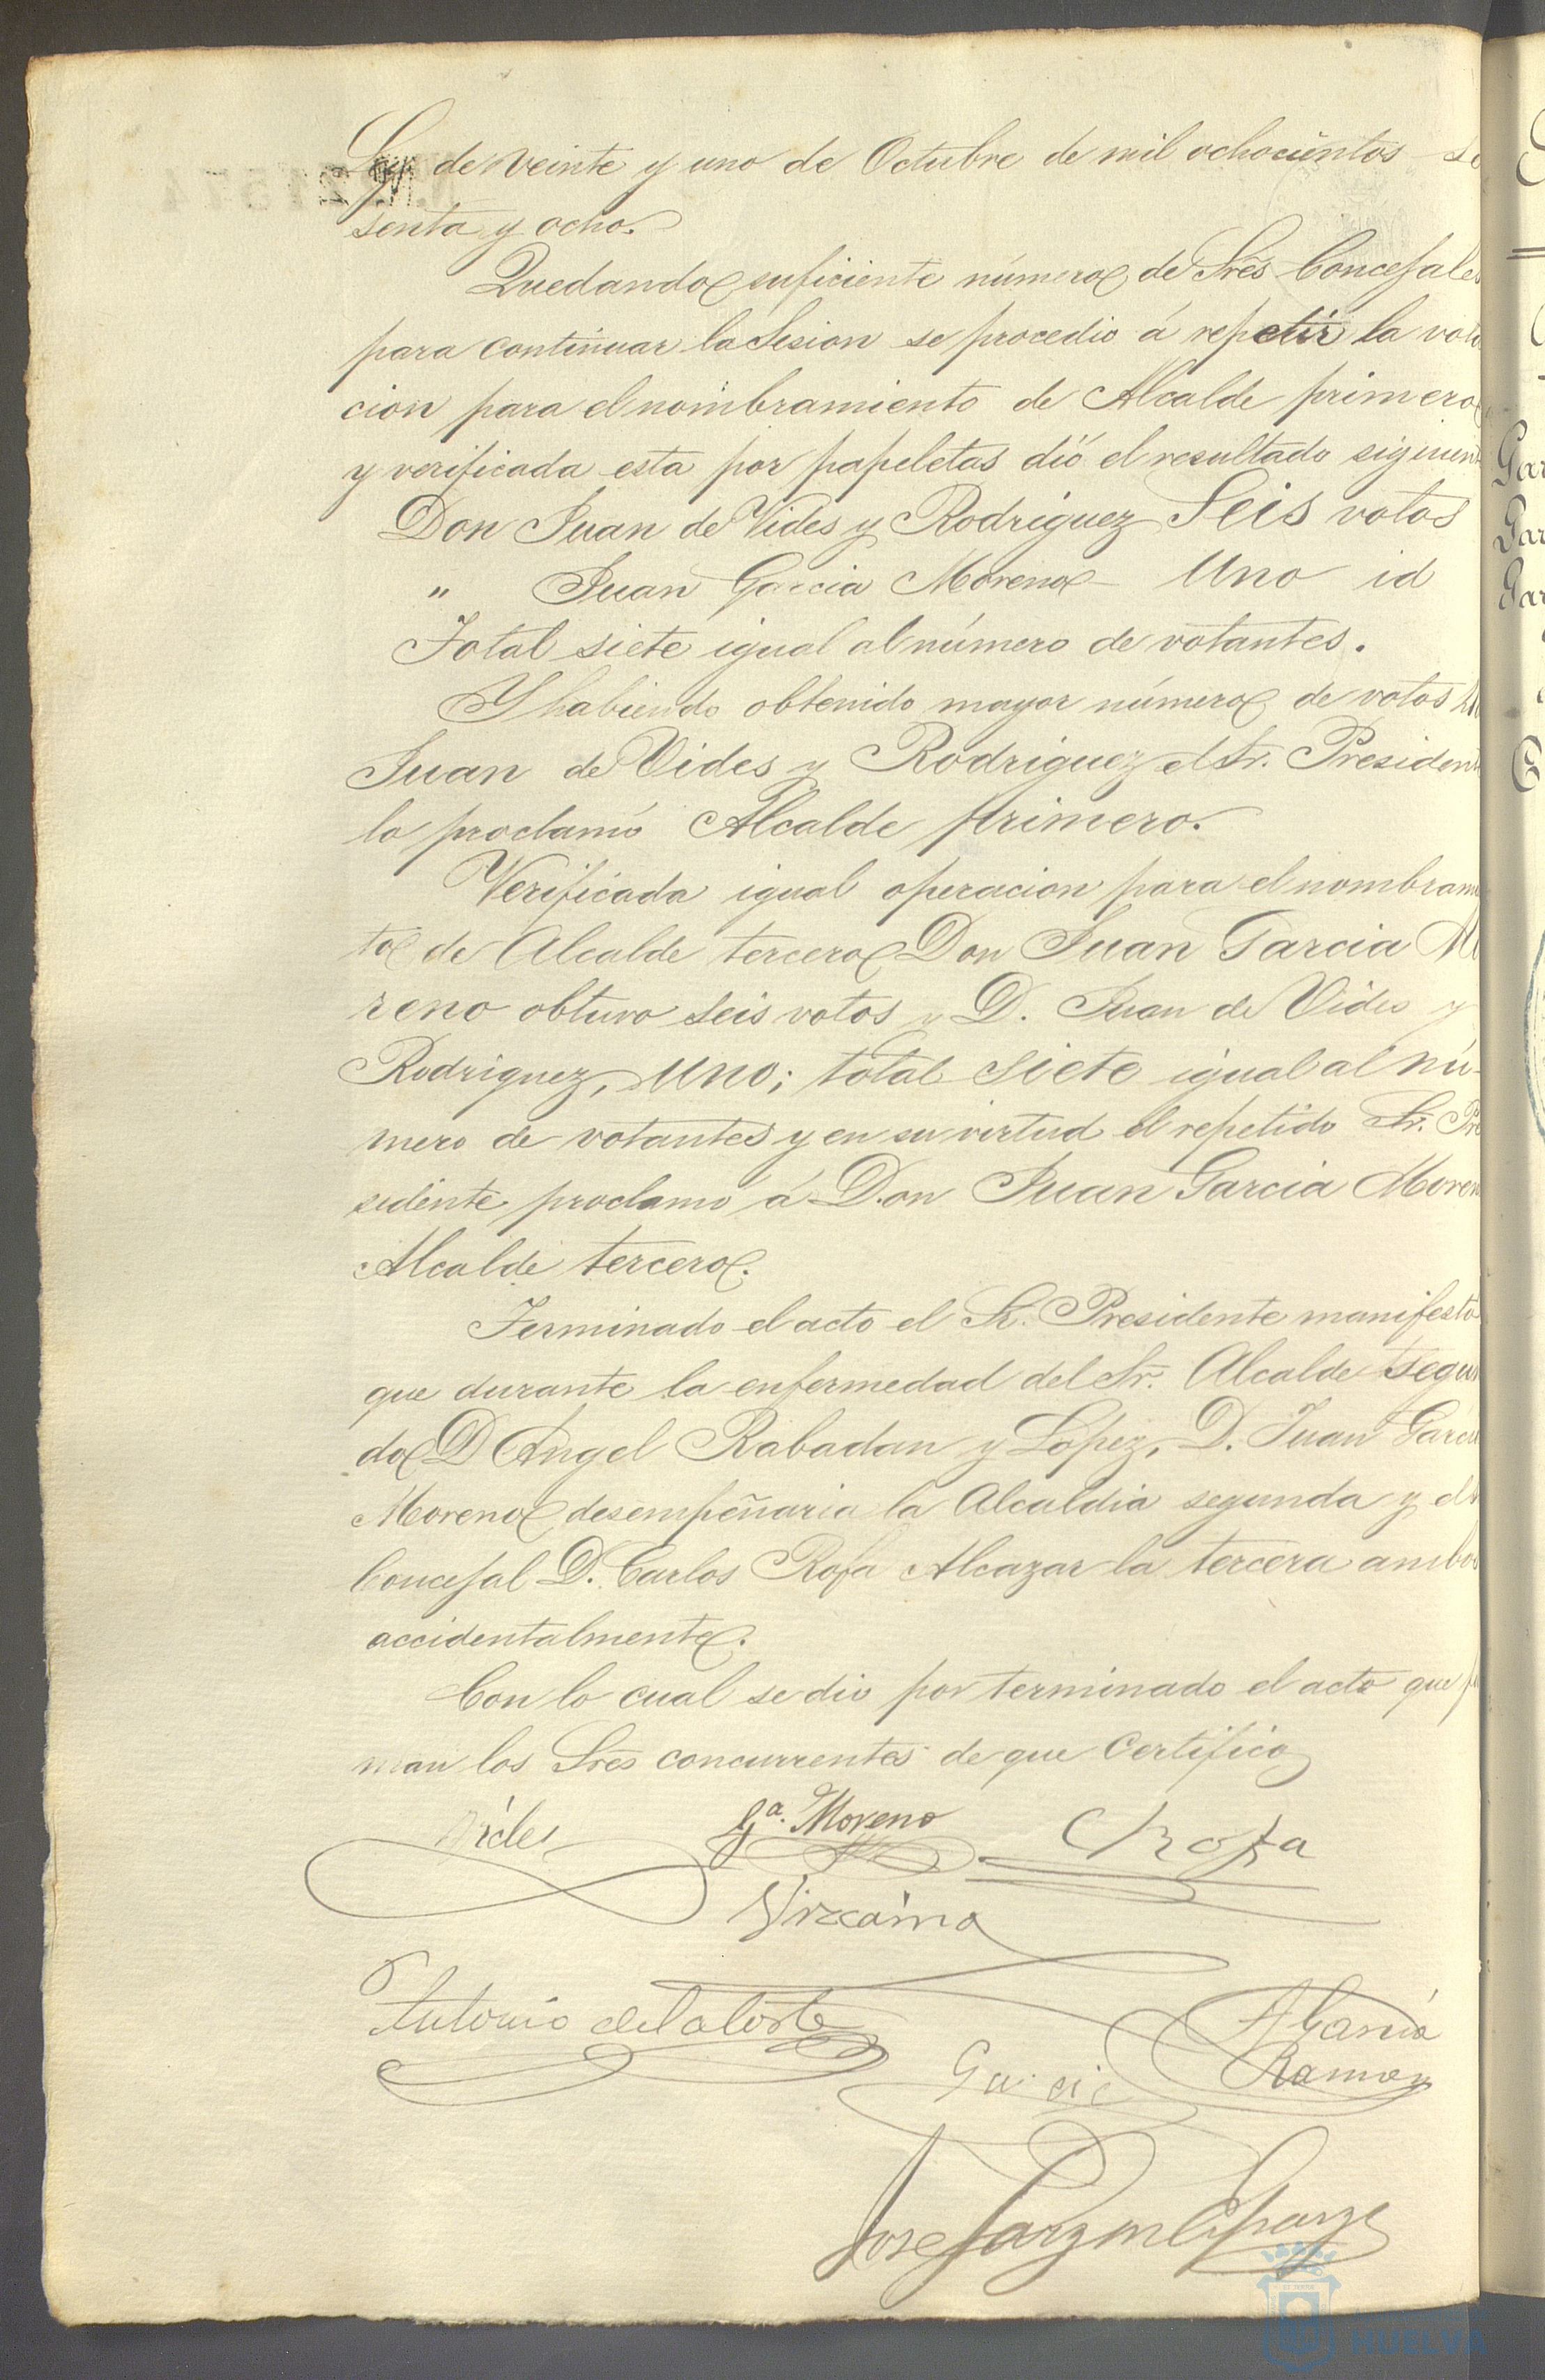 Ley de veinte y uno de Octubre de mil ochocientos se
senta y ocho.
Quedando suficiente número de Sres Concejales
para continuar la Sesion se procedio á repetir la vota
cion para el nombramiento de Alcalde primero
y verificada esta por papeletas dió el resultado siguien
Don Juan de Vides y Rodriguez Seis votos
" Juan Garcia Moreno Uno id
Total siete igual al número de votantes.
Y habiendo obtenido mayor número de votos
Juan de Vides y Rodriguez el Sr. President
lo proclamó Alcalde primero.
Verificada igual operacion para el nombram
to de Alcalde tercero Don Juan Garcia Mo
reno obtuvo seis votos y D. Juan de Vides y
Rodriguez, uno; total siete igual al nú-
mero de votantes y en su virtud el repetido Sr. Pre
sidente proclamó á Don Juan Garcia Moren
Alcalde tercero.
Terminado el acto el Sr. Presidente manifestó
que durante la enfermedad del Sr. Alcalde segun
do D Angel Rabadan y Lopez, D. Juan Garcia
Moreno desempeñaria la Alcaldia segunda y el
Concejal D. Carlos Rofa Alcazar la tercera ambos
accidentalmente.
Con lo cual se dio por terminado el acto que fi
man los Sres concurrentes de que Certifico
Vides Ga. Moreno C Rofa
Vizcaino
Antonio de la Corte A Garcia
Garcia Ramos
Jose
HUELVA